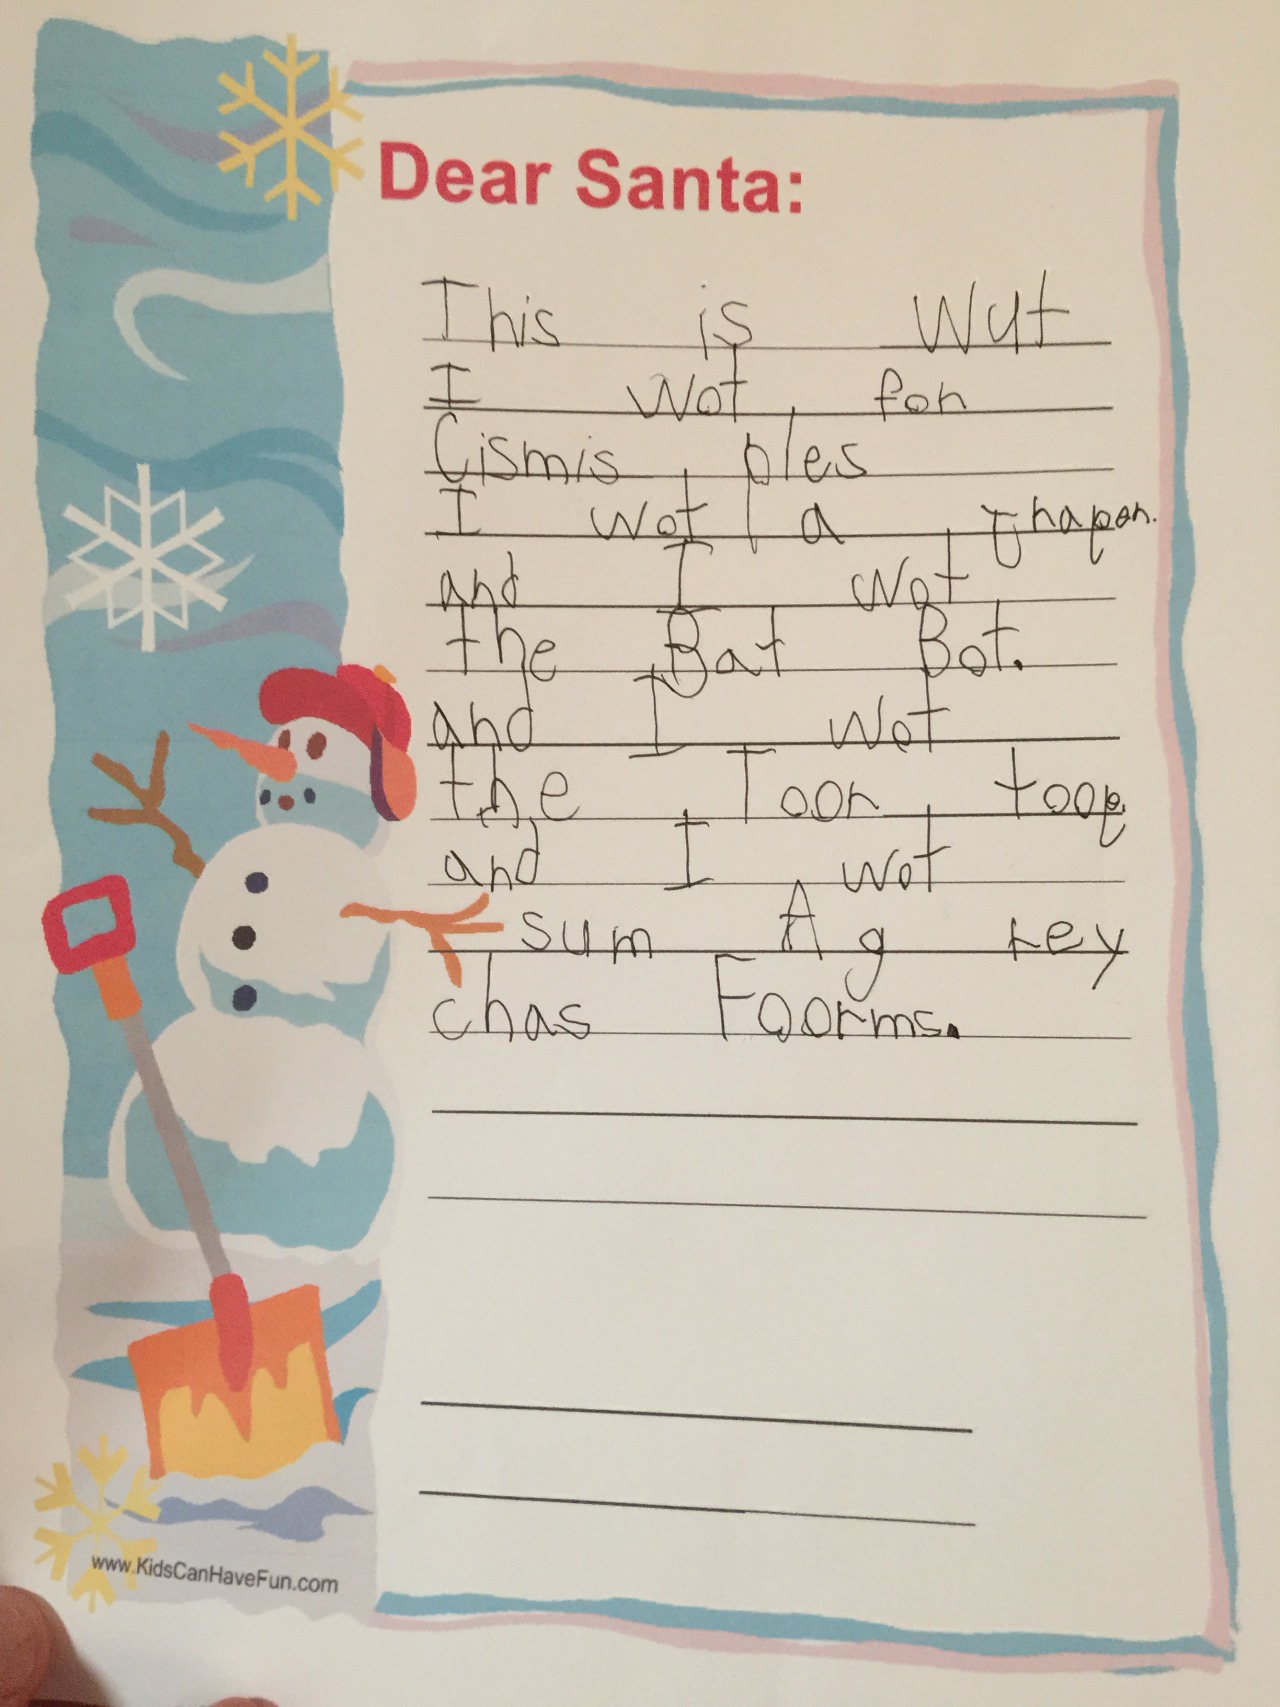 Dear Santa:
This is Wut
I Wot fon
Cismis ples
I wot a
and I Wot
the Bat Bot.
and I Wot
the Toon toop
and I wot
sum A g key
chas Foorms.
www.KidsCanHaveFun.com